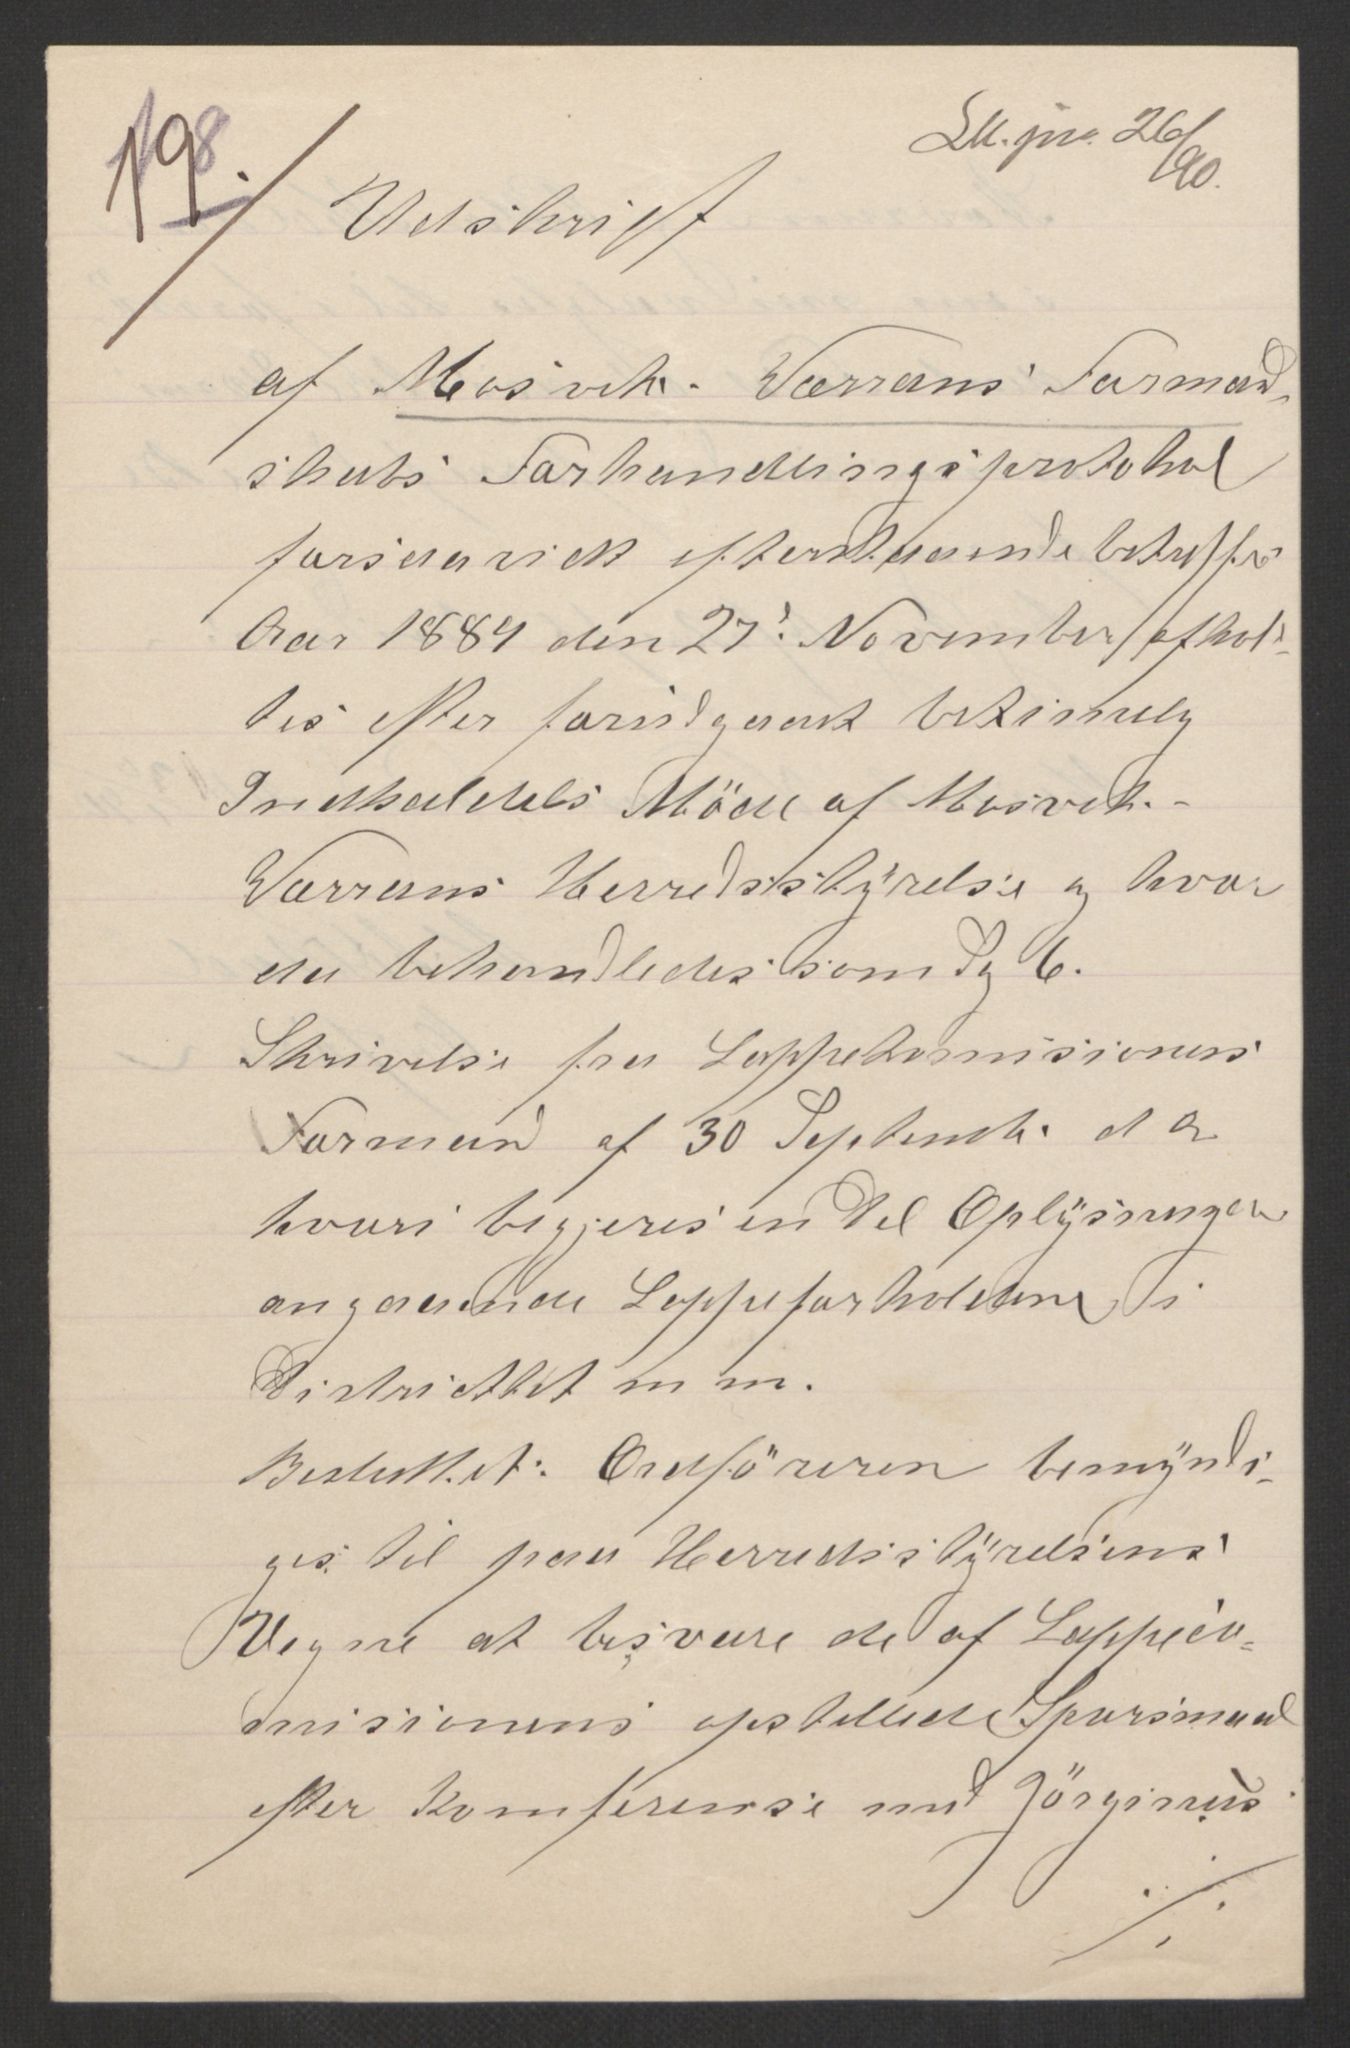 198.
Lk. jno. 26/90.
Udskrift
af Mosvik- Værrans Formand-
skabs Forhandlingsprotokol
forsaavidt efterstaaende betreffer
Aar 1889 den 27d. November afhol-
tes efter forudgaaet betimelig
Indkaldels Möde af Mosvik-
Værrans Herredsstÿrelse og hvor
da behandledes som Sg 6.
Skrivelse fra Lappekomisionens
Formand af 30 Septembr. d A
hvori begjeres en Del Oplÿsninger
angaaende Lappeforholdene i
Districktet m m.
Besluttet: Ordföreren bemÿndi-
ges til paa Herredsstÿrelsens
Vegne at besvare de af Lappeco-
misionens opstillede Sporsmaal
efter Konferense med Jörginus
./.